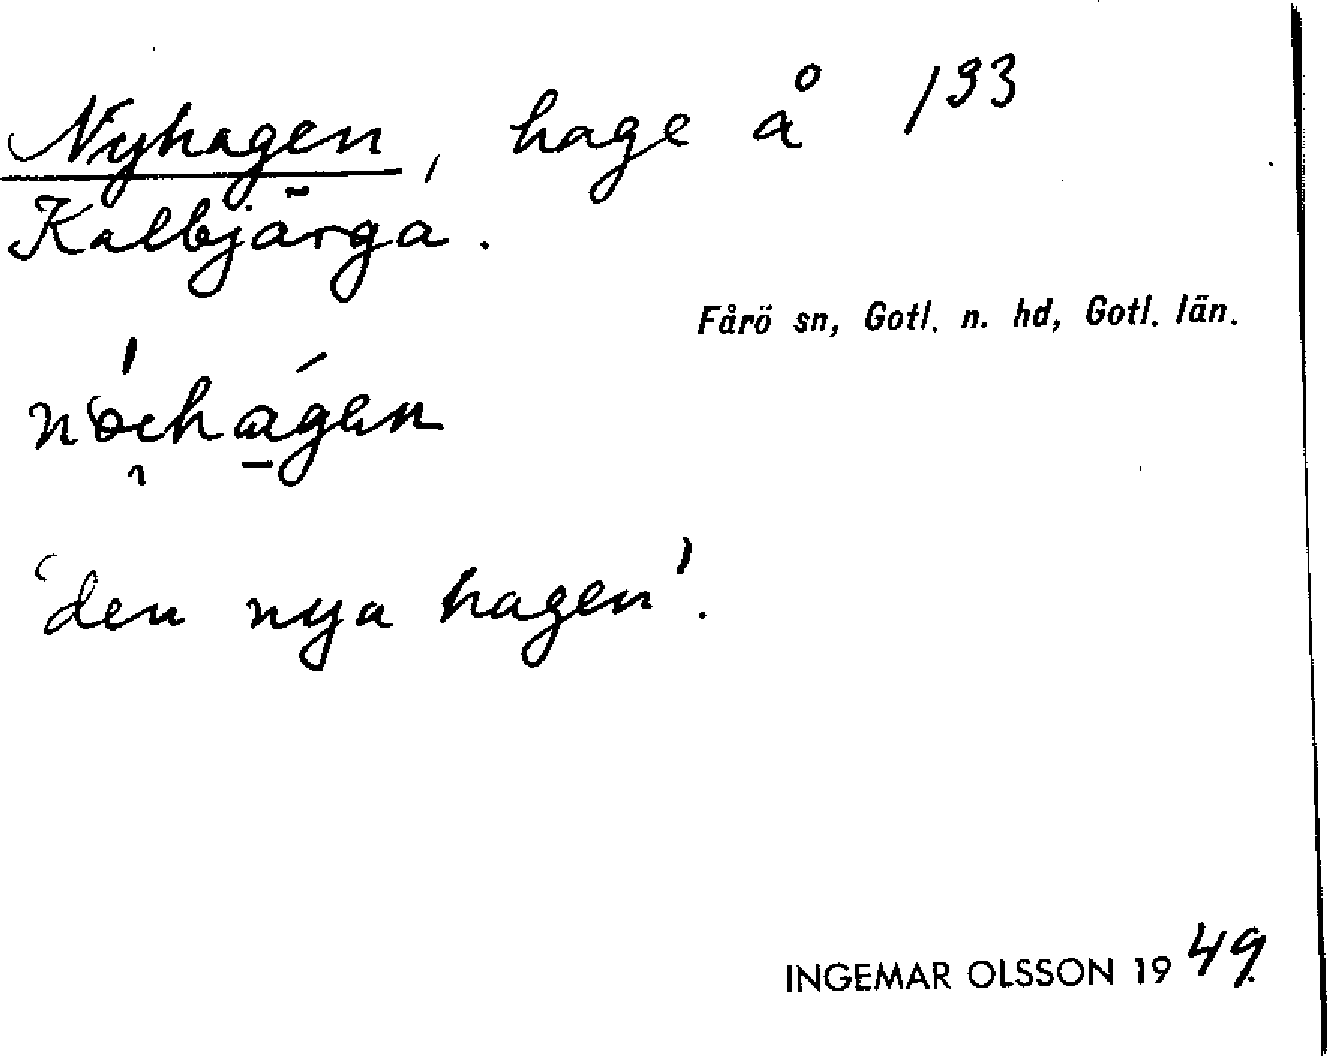 Nyhagen, hage å 133
Kalbjärgå.
Fårö sn, Gotl. n. hd, Gotl. län.
'den nya hagen'.
INGEMAR OLSSON 1949.